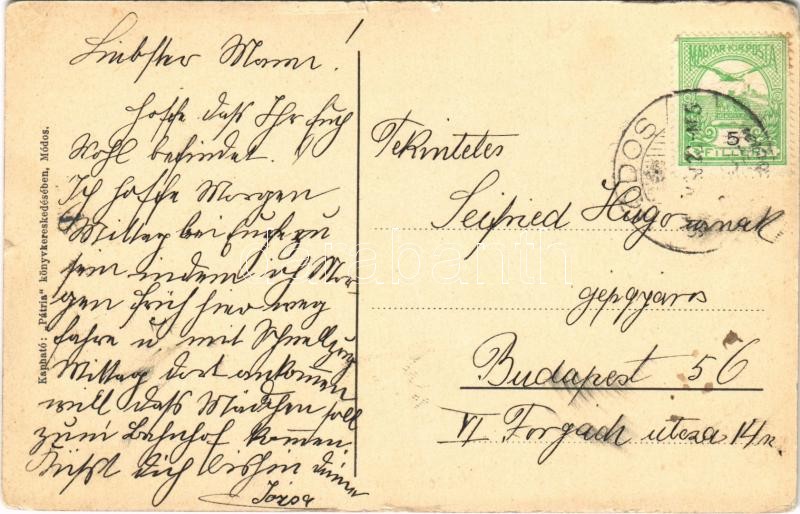 Liebster Mann!
hoffe daß Ihr Euch
Wohl befindet.
Ich hoffe Morgen
Mittag bei Euch zu
sein indem ich Mor-
gen früh hier weg
fahre u mit Schnellzug
Mittag dort ankommen
will daß Mädchen soll
zum Bahnhof kommen.
Küsst dich bishin deine
Józsa
Kapható: „Pátria" könyvkereskedésében, Módos.
MAGYAR KIR. POSTA
5
FILLÉR
MÓDOS
Tekintetes
Seifried Hugo urnak
gépgyáros
Budapest 56
VI Forgách utcza 14 sz.
darabanth